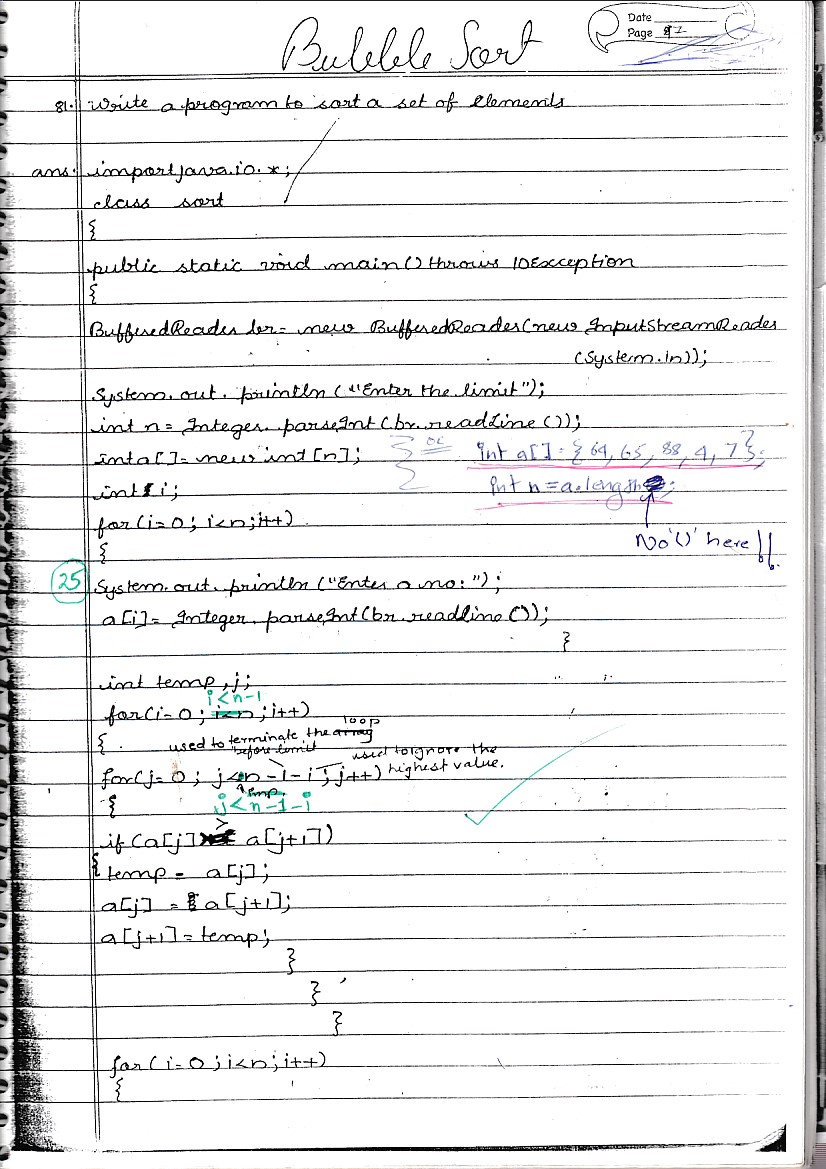 Bubble Sort
Date
Page
81. Write a program to sort a set of elements
ans. import java.io.*;
class sort
{
public static void main() throws IOException
{
BufferedReader br= new BufferedReader(new InputStreamReader
(System.in));
System.out.println("Enter the limit");
int n= Integer.parseInt(br.readLine());
int a[]= new int[n]; or int a[]={64,65,88,4,7};
int i; int n=a.length;
for(i=0; i<n;i++)
No '()' here!!
{
25 System.out.println("Enter a no:");
a[i]= Integer.parseInt(br.readline());
}
int temp,j;
i<n-1
for(i=0; i<n;i++)
loop
{ used to terminate the array
before limit used to ignore the
for(j=0; j<n-1-i; j++) highest value.
imp.
{ j<n-1-i
>
if(a[j] a[j+1])
{ temp= a[j];
a[j] = a[j+1];
a[j+1]=temp;
}
}
}
for(i=0;i<n;i++)
{